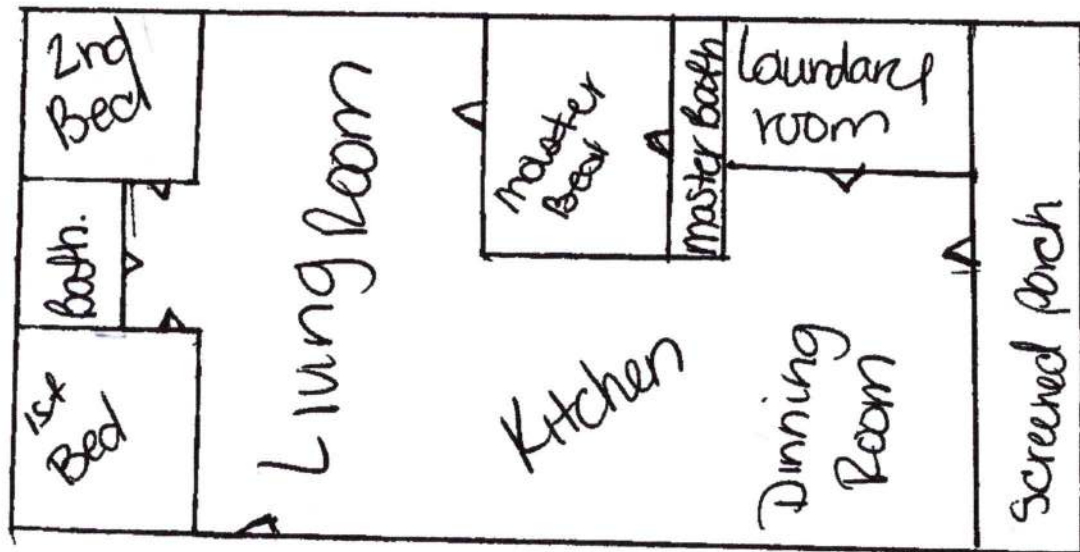 2nd
Bed
Bath.
1st
Bed
Living Room
master
Bed
master Bath
Laundary
room
Kitchen
Dinning
Room
Screened porch